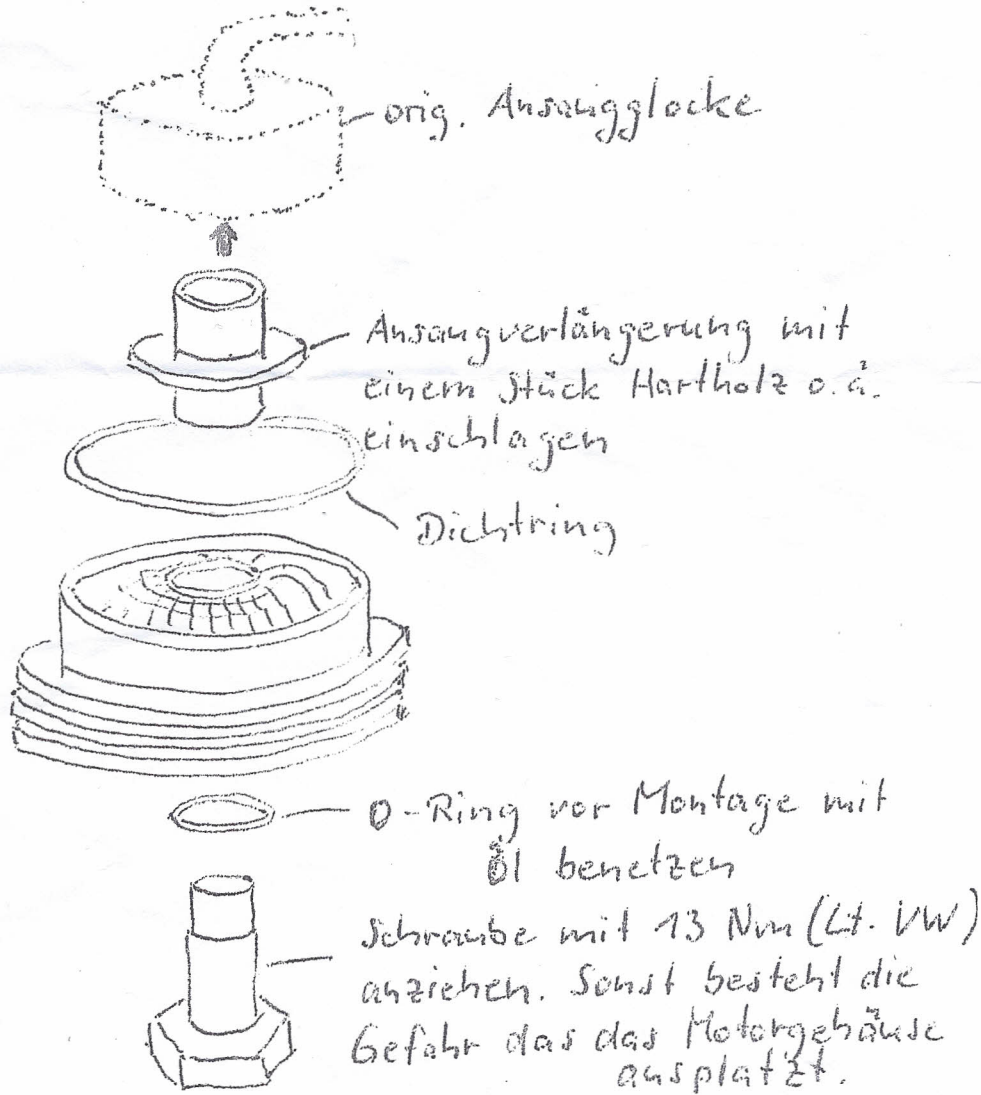 orig. Ansaugglocke
Ansaugverlängerung mit
einem Stück Hartholz o.ä.
einschlagen
Dichtring
O-Ring vor Montage mit
Öl benetzen
Schraube mit 13 Nm (Lt. VW)
anziehen. Sonst besteht die
Gefahr das das Motorgehäuse
ausplatzt.